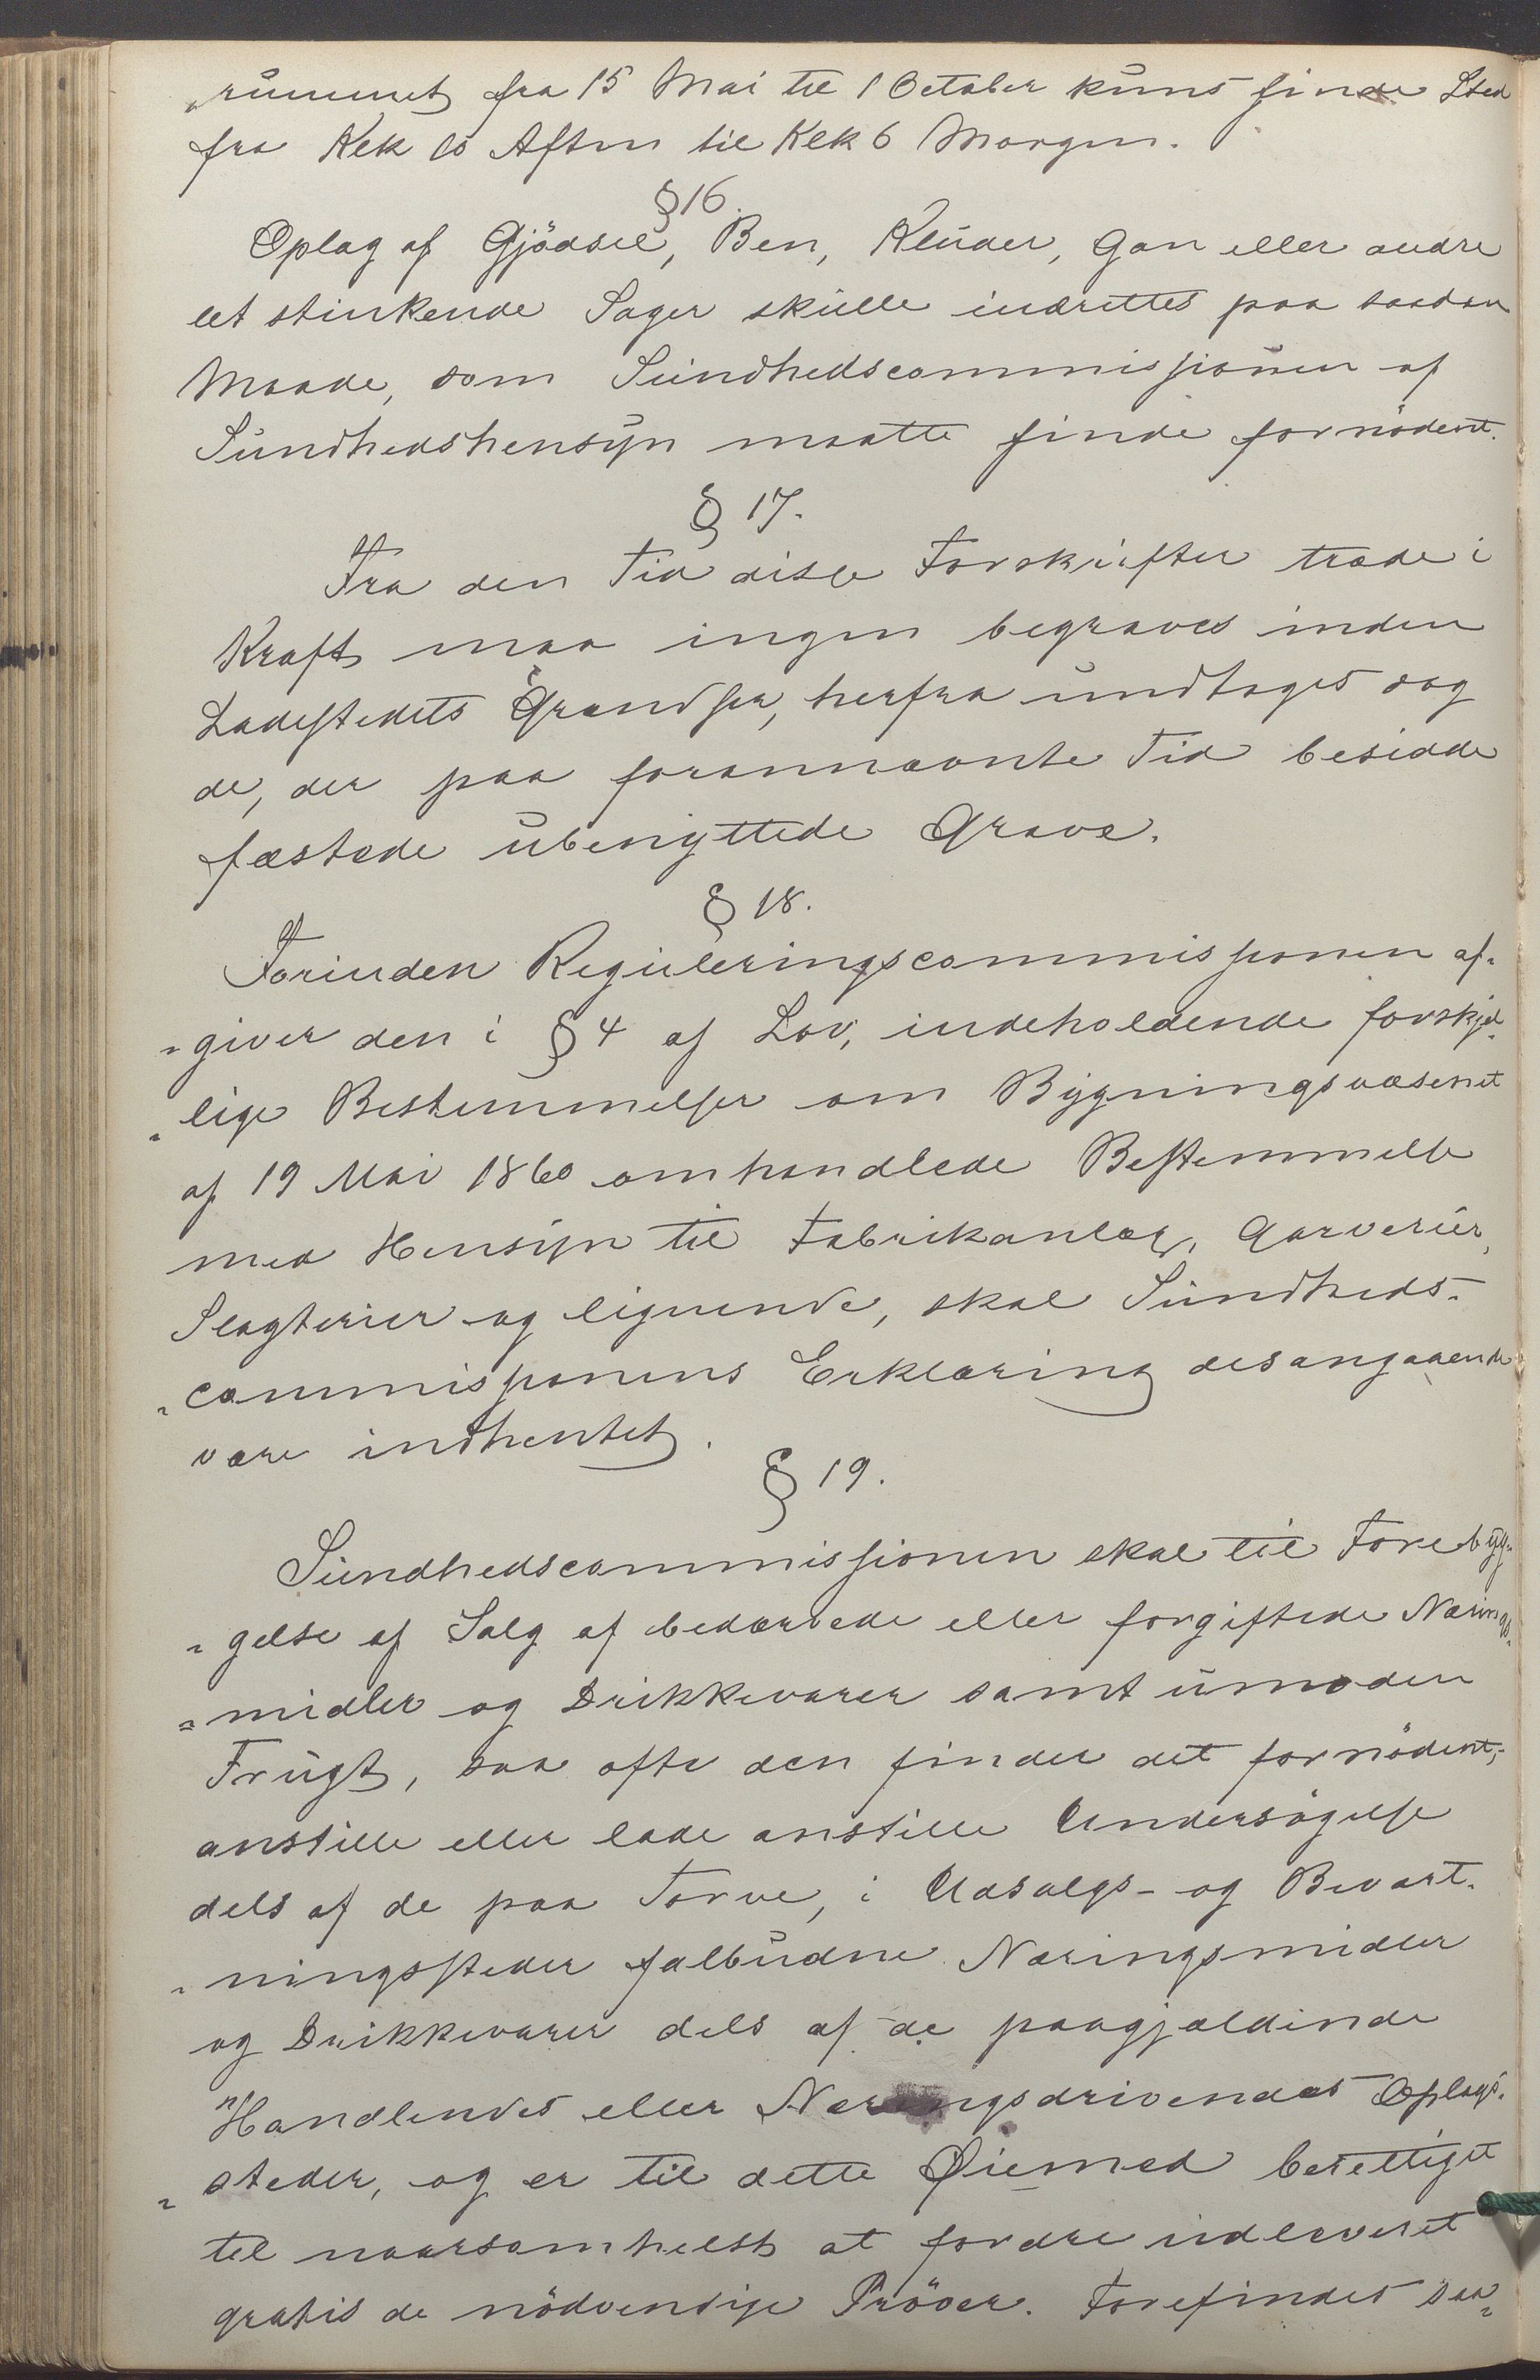 „rummet fra 15 Mai til 1 October kuns finde Sted
fra Klk 10 Aften til Klk 6 Morgen.
§ 16.
Oplag af Gjödsel, Ben, Kluder, Gan eller andre
let stinkende Sager skulle indrettes paa saadan
Maade, som Sundhedscommissionen af
Sundhedshensyn maatte finde fornödent.
§ 17.
Fra den Tid disse Forskrifter træde i
Kraft maa ingen begraves inden
Ladestedets Grændser, herfra undtages dog
de, der paa forannævnte Tid besidde
fæstede ubenyttede Grave.
§ 18.
Forinden Reguleringscommissionen af„
„giver den i § 4 af Lov, indeholdende forskjel„
„lige Bestemmelser om Bygningsvæsenet
af 19 Mai 1860 omhandlede Bestemmelse
med Hensyn til Fabrikanlæg, Garverier,
Slagterier og lignende, skal Sundheds„
„commissionens Erklæring desangaaende
være indhentet.
§ 19.
Sundhedscommissionen skal til Forebyg„
„gelse af Salg af bedærvede eller forgiftede Nærings„
„midler og Drikkevarer samt umoden
Frugt, saa ofte den finder det fornödent,
anstille eller lade anstille Undersögelse
dels af de paa Torve, i Udsalgs- og Bevært„
„ningssteder falbudne Næringsmidler
og Drikkevarer dels af de paagjældende
Handlendes eller Næringsdrivendes Oplags„
„steder, og er til dette Øiemed berettiget
til naarsomhelst at fordre indleveret
gratis de nödvendige Pröver. Forefindes saa„